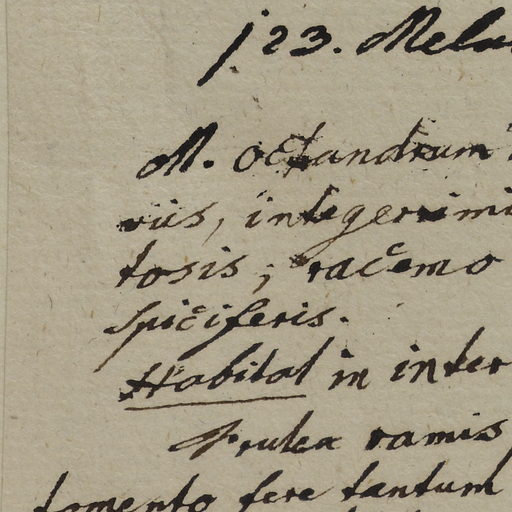 123. Mela
M. octandrum
riis, integerrimi
tosis; racemo
spiciferis.
Habitat in inter
Frutex ramis
tomento fere tantum